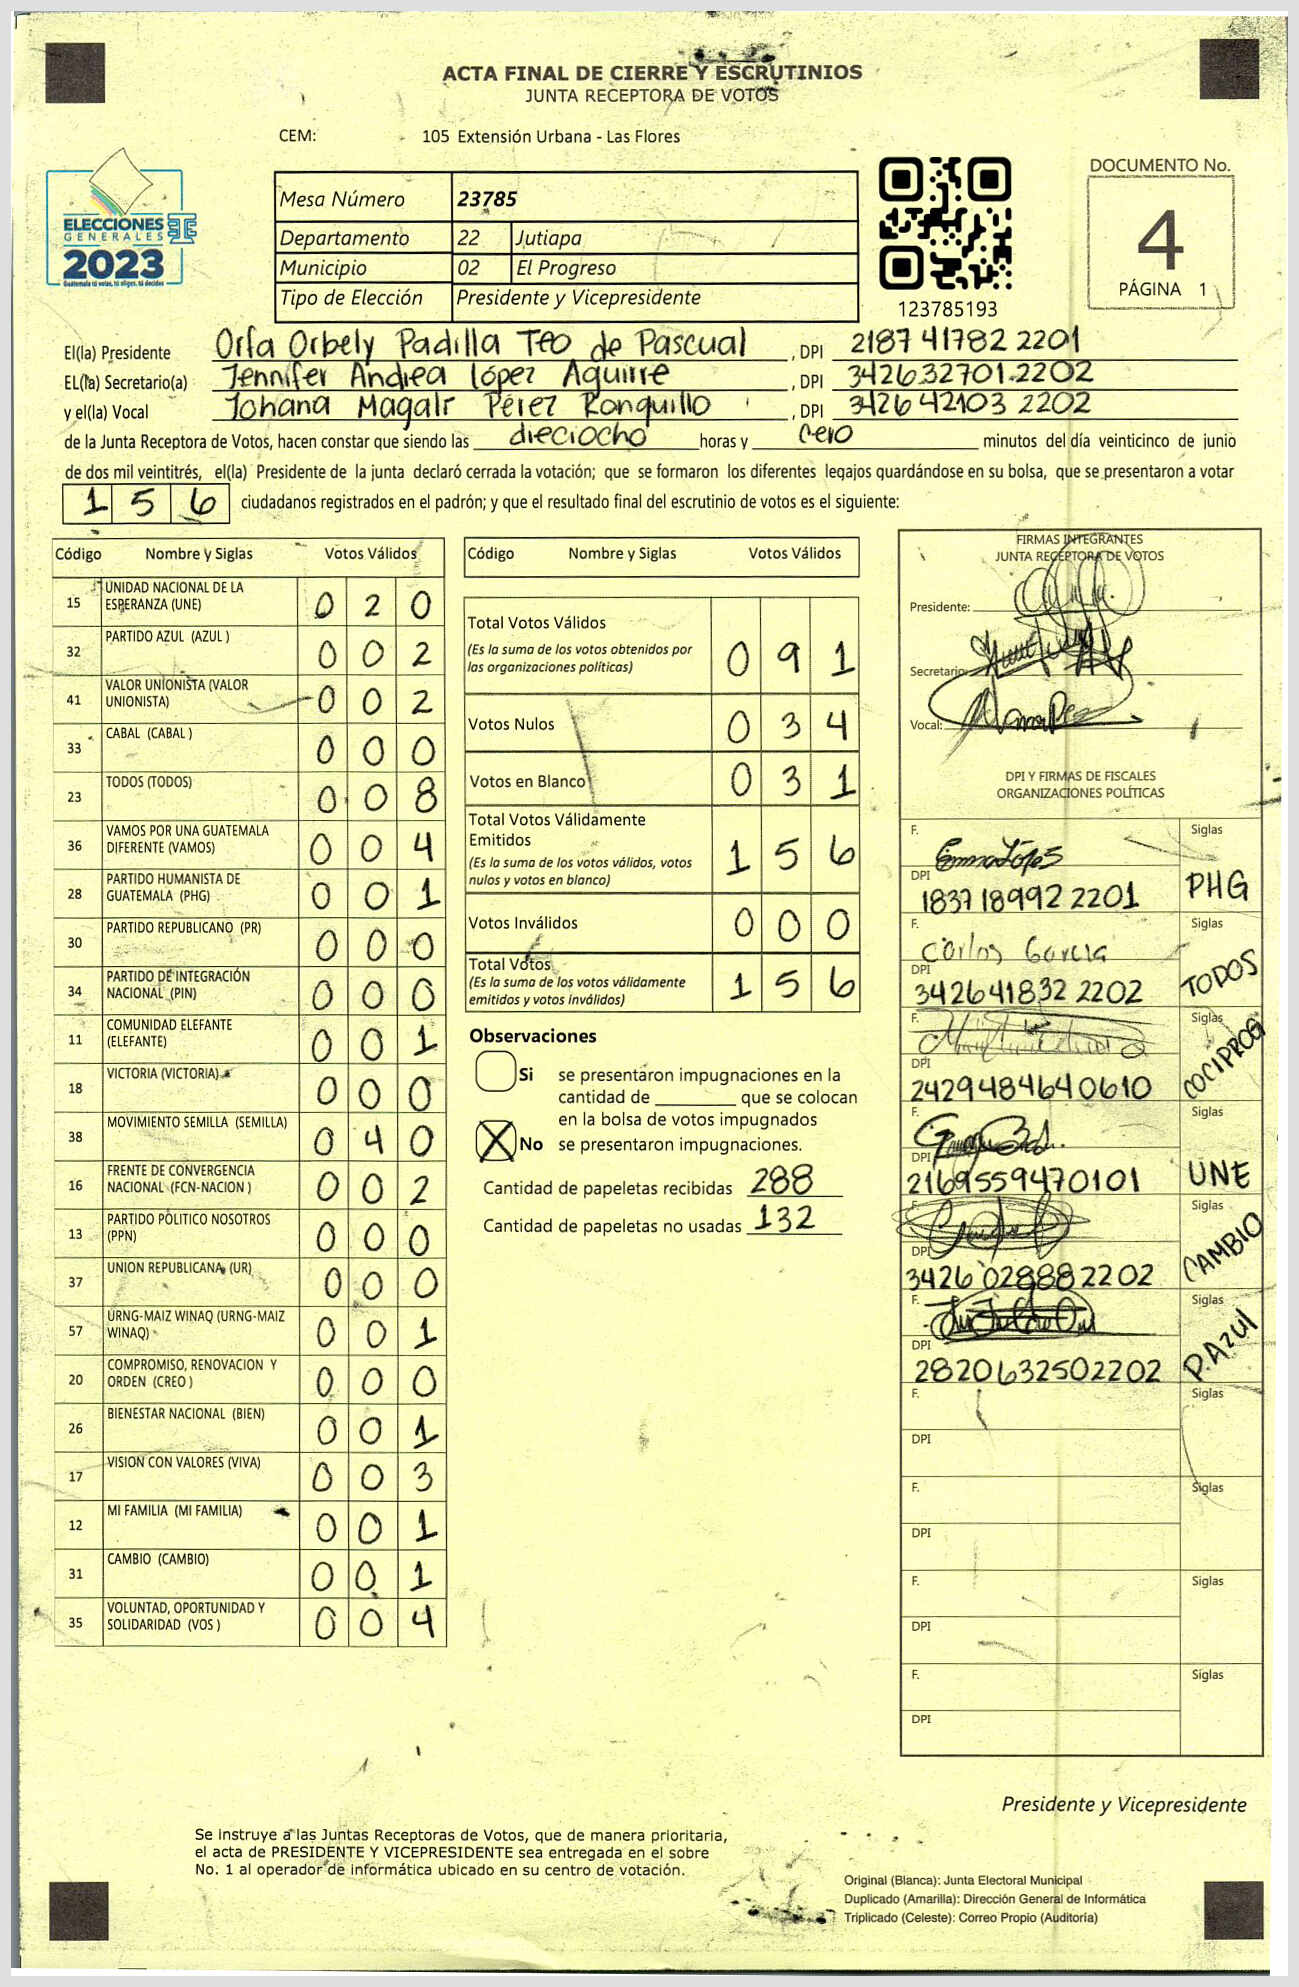 ACTA FINAL DE CIERRE Y ESCRUTINIOS
JUNTA RECEPTORA DE VOTOS
CEM: 105 Extensión Urbana - Las Flores
ELECCIONES
GENERALES
2023
Guatemala tú votas, tú eliges, tú decides
Mesa Número 23785
Departamento 22 Jutiapa
Municipio 02 El Progreso
Tipo de Elección Presidente y Vicepresidente
123785193
DOCUMENTO No.
4
PÁGINA 1
El(la) Presidente Orfa Orbely Padilla Teo de Pascual , DPI 2187 41782 2201
EL(la) Secretario(a) Jennifer Andrea López Aguirre , DPI 342632701 2202
y el(la) Vocal Johana Magalí Pérez Ronquillo , DPI 3426 42103 2202
de la Junta Receptora de Votos, hacen constar que siendo las dieciocho horas y cero minutos del día veinticinco de junio
de dos mil veintitrés, el(la) Presidente de la junta declaró cerrada la votación; que se formaron los diferentes legajos quardándose en su bolsa, que se presentaron a votar
156 ciudadanos registrados en el padrón; y que el resultado final del escrutinio de votos es el siguiente:
Código Nombre y Siglas Votos Válidos
15 UNIDAD NACIONAL DE LA ESPERANZA (UNE) 0 2 0
32 PARTIDO AZUL (AZUL ) 0 0 2
41 VALOR UNIONISTA (VALOR UNIONISTA) 0 0 2
33 CABAL (CABAL ) 0 0 0
23 TODOS (TODOS) 0 0 8
36 VAMOS POR UNA GUATEMALA DIFERENTE (VAMOS) 0 0 4
28 PARTIDO HUMANISTA DE GUATEMALA (PHG) 0 0 1
30 PARTIDO REPUBLICANO (PR) 0 0 0
34 PARTIDO DE INTEGRACIÓN NACIONAL (PIN) 0 0 0
11 COMUNIDAD ELEFANTE (ELEFANTE) 0 0 1
18 VICTORIA (VICTORIA) 0 0 0
38 MOVIMIENTO SEMILLA (SEMILLA) 0 4 0
16 FRENTE DE CONVERGENCIA NACIONAL (FCN-NACION ) 0 0 2
13 PARTIDO POLITICO NOSOTROS (PPN) 0 0 0
37 UNION REPUBLICANA (UR) 0 0 0
57 URNG-MAIZ WINAQ (URNG-MAIZ WINAQ) 0 0 1
20 COMPROMISO, RENOVACION Y ORDEN (CREO ) 0 0 0
26 BIENESTAR NACIONAL (BIEN) 0 0 1
17 VISION CON VALORES (VIVA) 0 0 3
12 MI FAMILIA (MI FAMILIA) 0 0 1
31 CAMBIO (CAMBIO) 0 0 1
35 VOLUNTAD, OPORTUNIDAD Y SOLIDARIDAD (VOS ) 0 0 4
Código Nombre y Siglas Votos Válidos
Total Votos Válidos
(Es la suma de los votos obtenidos por las organizaciones políticas) 0 9 1
Votos Nulos 0 3 4
Votos en Blanco 0 3 1
Total Votos Válidamente Emitidos
(Es la suma de los votos válidos, votos nulos y votos en blanco) 1 5 6
Votos Inválidos 0 0 0
Total Votos
(Es la suma de los votos válidamente emitidos y votos inválidos) 1 5 6
Observaciones
Si se presentaron impugnaciones en la
cantidad de ________ que se colocan
en la bolsa de votos impugnados
X No se presentaron impugnaciones.
Cantidad de papeletas recibidas 288
Cantidad de papeletas no usadas 132
FIRMAS INTEGRANTES
JUNTA RECEPTORA DE VOTOS
Presidente:
Secretario:
Vocal:
DPI Y FIRMAS DE FISCALES
ORGANIZACIONES POLÍTICAS
F. Emma López Siglas
DPI 1837 18992 2201 PHG
F. Carlos Garcia Siglas
DPI 342641832 2202 TODOS
F. Siglas
DPI 2429484640610 COCIPROG
F. Siglas
DPI 2169559470101 UNE
F. Siglas
DPI 3426 02888 2202 CAMBIO
F. Siglas
DPI 2820632502202 P. Azul
F. Siglas
DPI
F. Siglas
DPI
F. Siglas
DPI
F. Siglas
DPI
Presidente y Vicepresidente
Se instruye a las Juntas Receptoras de Votos, que de manera prioritaria,
el acta de PRESIDENTE Y VICEPRESIDENTE sea entregada en el sobre
No. 1 al operador de informática ubicado en su centro de votación.
Original (Blanca): Junta Electoral Municipal
Duplicado (Amarilla): Dirección General de Informática
Triplicado (Celeste): Correo Propio (Auditoría)